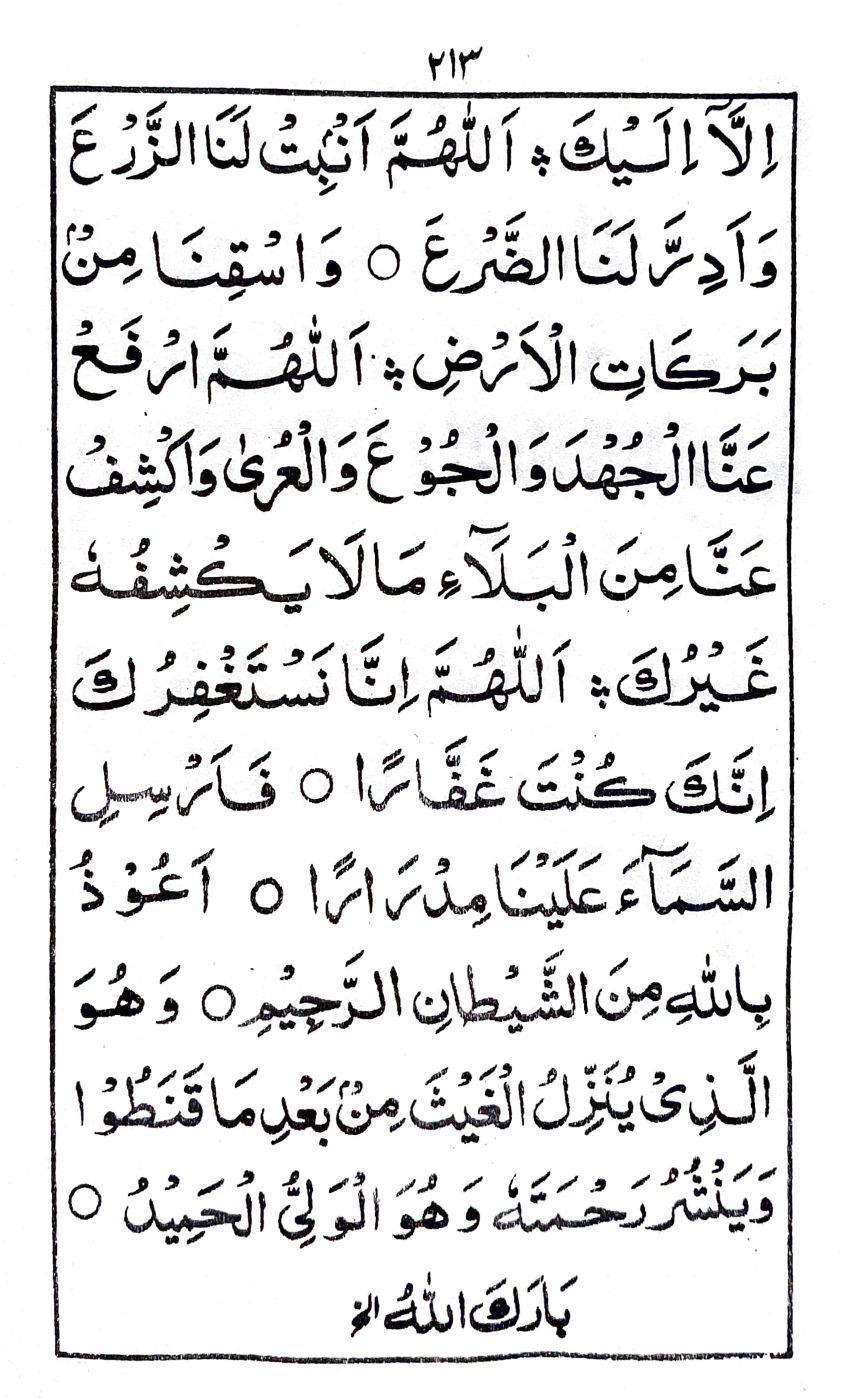 ٢١٣
اِلَّآ اِلَيْكَ ؞ اَللّٰهُمَّ اَنْۢبِتْ لَنَا الزَّرْعَ
وَاَدِرَّ لَنَا الضَّرْعَ ○ وَاسْقِنَا مِنْۢ
بَرَكَاتِ الْاَرْضِ ؞ اَللّٰهُمَّ ارْفَعْ
عَنَّا الْجُهْدَ وَالْجُوْعَ وَالْعُرْىٰ وَاَكْشِفْ
عَنَّا مِنَ الْبَلَآءِ مَا لَا يَكْشِفُهٗ
غَيْرُكَ ؞ اَللّٰهُمَّ اِنَّا نَسْتَغْفِرُكَ
اِنَّكَ كُنْتَ غَفَّارًا ○ فَاَرْسِلِ
السَّمَآءَ عَلَيْنَا مِدْرَارًا ○ اَعُوْذُ
بِاللّٰهِ مِنَ الشَّيْطَانِ الرَّجِيْمِ ○ وَهُوَ
الَّذِىْ يُنَزِّلُ الْغَيْثَ مِنْۢ بَعْدِ مَا قَنَطُوْا
وَيَنْشُرُ رَحْمَتَهٗ وَهُوَ الْوَلِىُّ الْحَمِيْدُ ○
بَارَكَ اللّٰهُ الخ